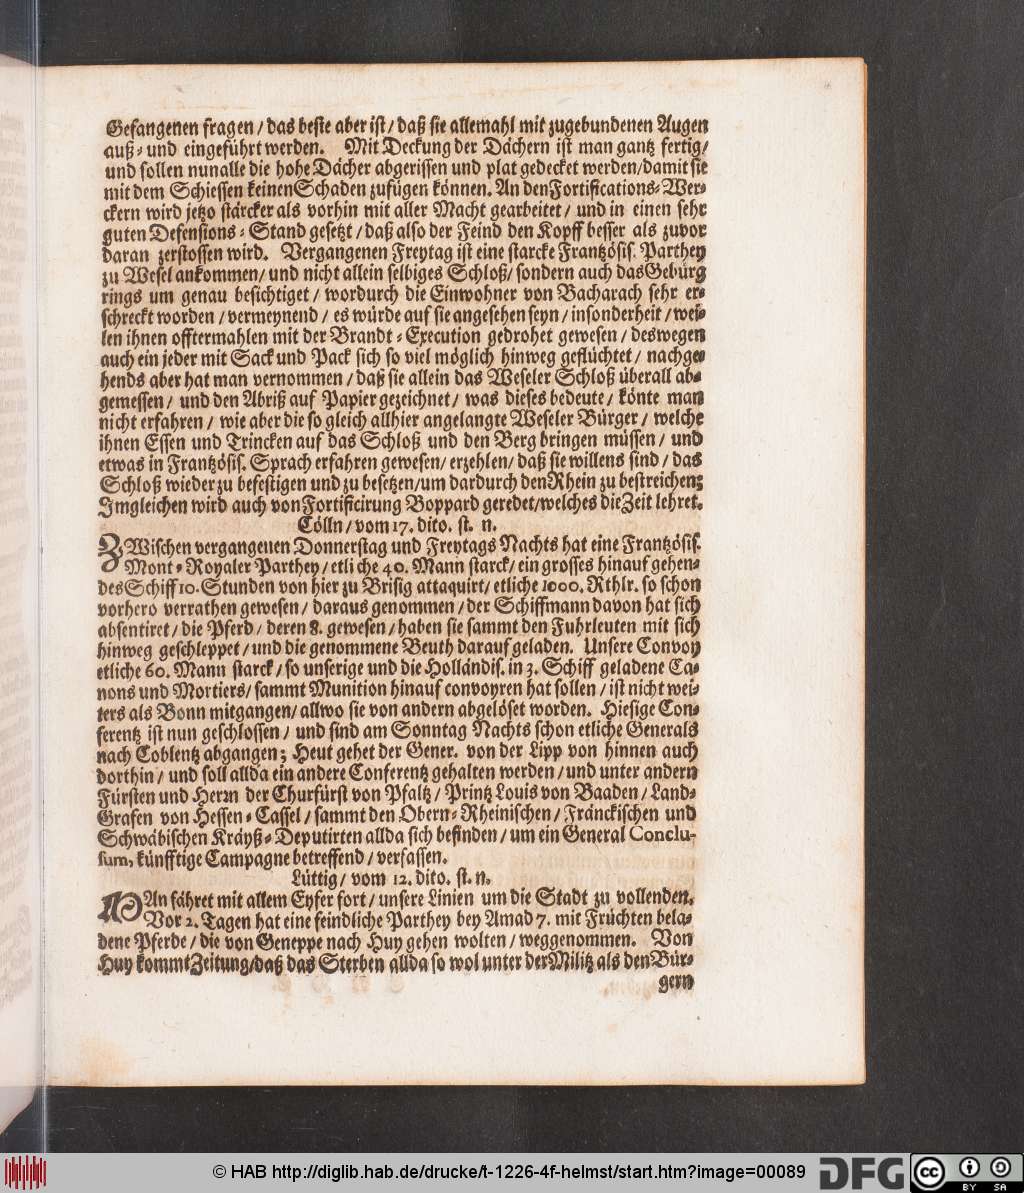 Gefangenen fragen / das beste aber ist / daß sie allemahl mit zugebundenen Augen
auß- und eingeführt werden. Mit Deckung der Dächern ist man gantz fertig/
und sollen nunalle die hohe Dächer abgerissen und plat gedecket werden/damit sie
mit dem Schiessen keinen Schaden zufügen können. An den Fortifications-Wer-
ckern wird jetzo stärcker als vorhin mit aller Macht gearbeitet / und in einen sehr
guten Defensions-Stand gesetzt / daß also der Feind den Kopff besser als zuvor
daran zerstossen wird. Vergangenen Freytag ist eine starcke Frantzösis. Parthey
zu Wesel ankommen/ und nicht allein selbiges Schloß/ sondern auch das Gebürg
rings um genau besichtiget / wordurch die Einwohner von Bacharach sehr er-
schreckt worden / vermeynend / es würde auf sie angesehen seyn / insonderheit / wei-
len ihnen offtermahlen mit der Brandt-Execution gedrohet gewesen / deswegen
auch ein jeder mit Sack und Pack sich so viel möglich hinweg geflüchtet / nachge-
hends aber hat man vernommen / daß sie allein das Weseler Schloß überall ab-
gemessen / und den Abriß auf Papier gezeichnet / was dieses bedeute / könte man
nicht erfahren / wie aber die so gleich allhier angelangte Weseler Bürger / welche
ihnen Essen und Trincken auf das Schloß und den Berg bringen müssen / und
etwas in Frantzösis. Sprach erfahren gewesen/ erzehlen/ daß sie willens sind / das
Schloß wieder zu befestigen und zu besetzen/um dardurch den Rhein zu bestreichen;
Imgleichen wird auch von Fortificirung Boppard geredet/welches die Zeit lehret.
Cölln / vom 17. dito. st. n.
ZWischen vergangenen Donnerstag und Freytags Nachts hat eine Frantzösis.
Mont-Royaler Parthey / etliche 40. Mann starck / ein grosses hinauf gehen-
des Schiff 10. Stunden von hier zu Brisig attaquirt/ etliche 1000. Rthlr. so schon
vorhero verrathen gewesen / daraus genommen / der Schiffmann davon hat sich
absentiret / die Pferd / deren 8. gewesen / haben sie sammt den Fuhrleuten mit sich
hinweg geschleppet / und die genommene Beuth darauf geladen. Unsere Convoy
etliche 60. Mann starck / so unserige und die Holländis. in 3. Schiff geladene Ca-
nons und Mortiers/ sammt Munition hinauf convoyren hat sollen / ist nicht wei-
ters als Bonn mitgangen/ allwo sie von andern abgelöset worden. Hiesige Con-
ferentz ist nun geschlossen / und sind am Sonntag Nachts schon etliche Generals
nach Coblentz abgangen; Heut gehet der Gener. von der Lipp von hinnen auch
dorthin / und soll allda ein andere Conferentz gehalten werden / und unter andern
Fürsten und Herrn der Churfürst von Pfaltz / Printz Louis von Baaden / Land-
Grafen von Hessen-Cassel / sammt den Obern-Rheinischen / Fränckischen und
Schwäbischen Kräyß-Deputirten allda sich befinden / um ein General Conclu-
sum, künfftige Campagne betreffend / verfassen.
Lüttig / vom 12. dito. st. n.
MAn fähret mit allem Eyfer fort / unsere Linien um die Stadt zu vollenden.
Vor 2. Tagen hat eine feindliche Parthey bey Amad 7. mit Früchten bela-
dene Pferde / die von Geneppe nach Huy gehen wolten / weggenommen. Von
Huy kommt Zeitung/daß das Sterben allda so wol unter der Militz als den Bür-
gern
© HAB http://diglib.hab.de/drucke/t-1226-4f-helmst/start.htm?image=00089
DFG
cc BY SA